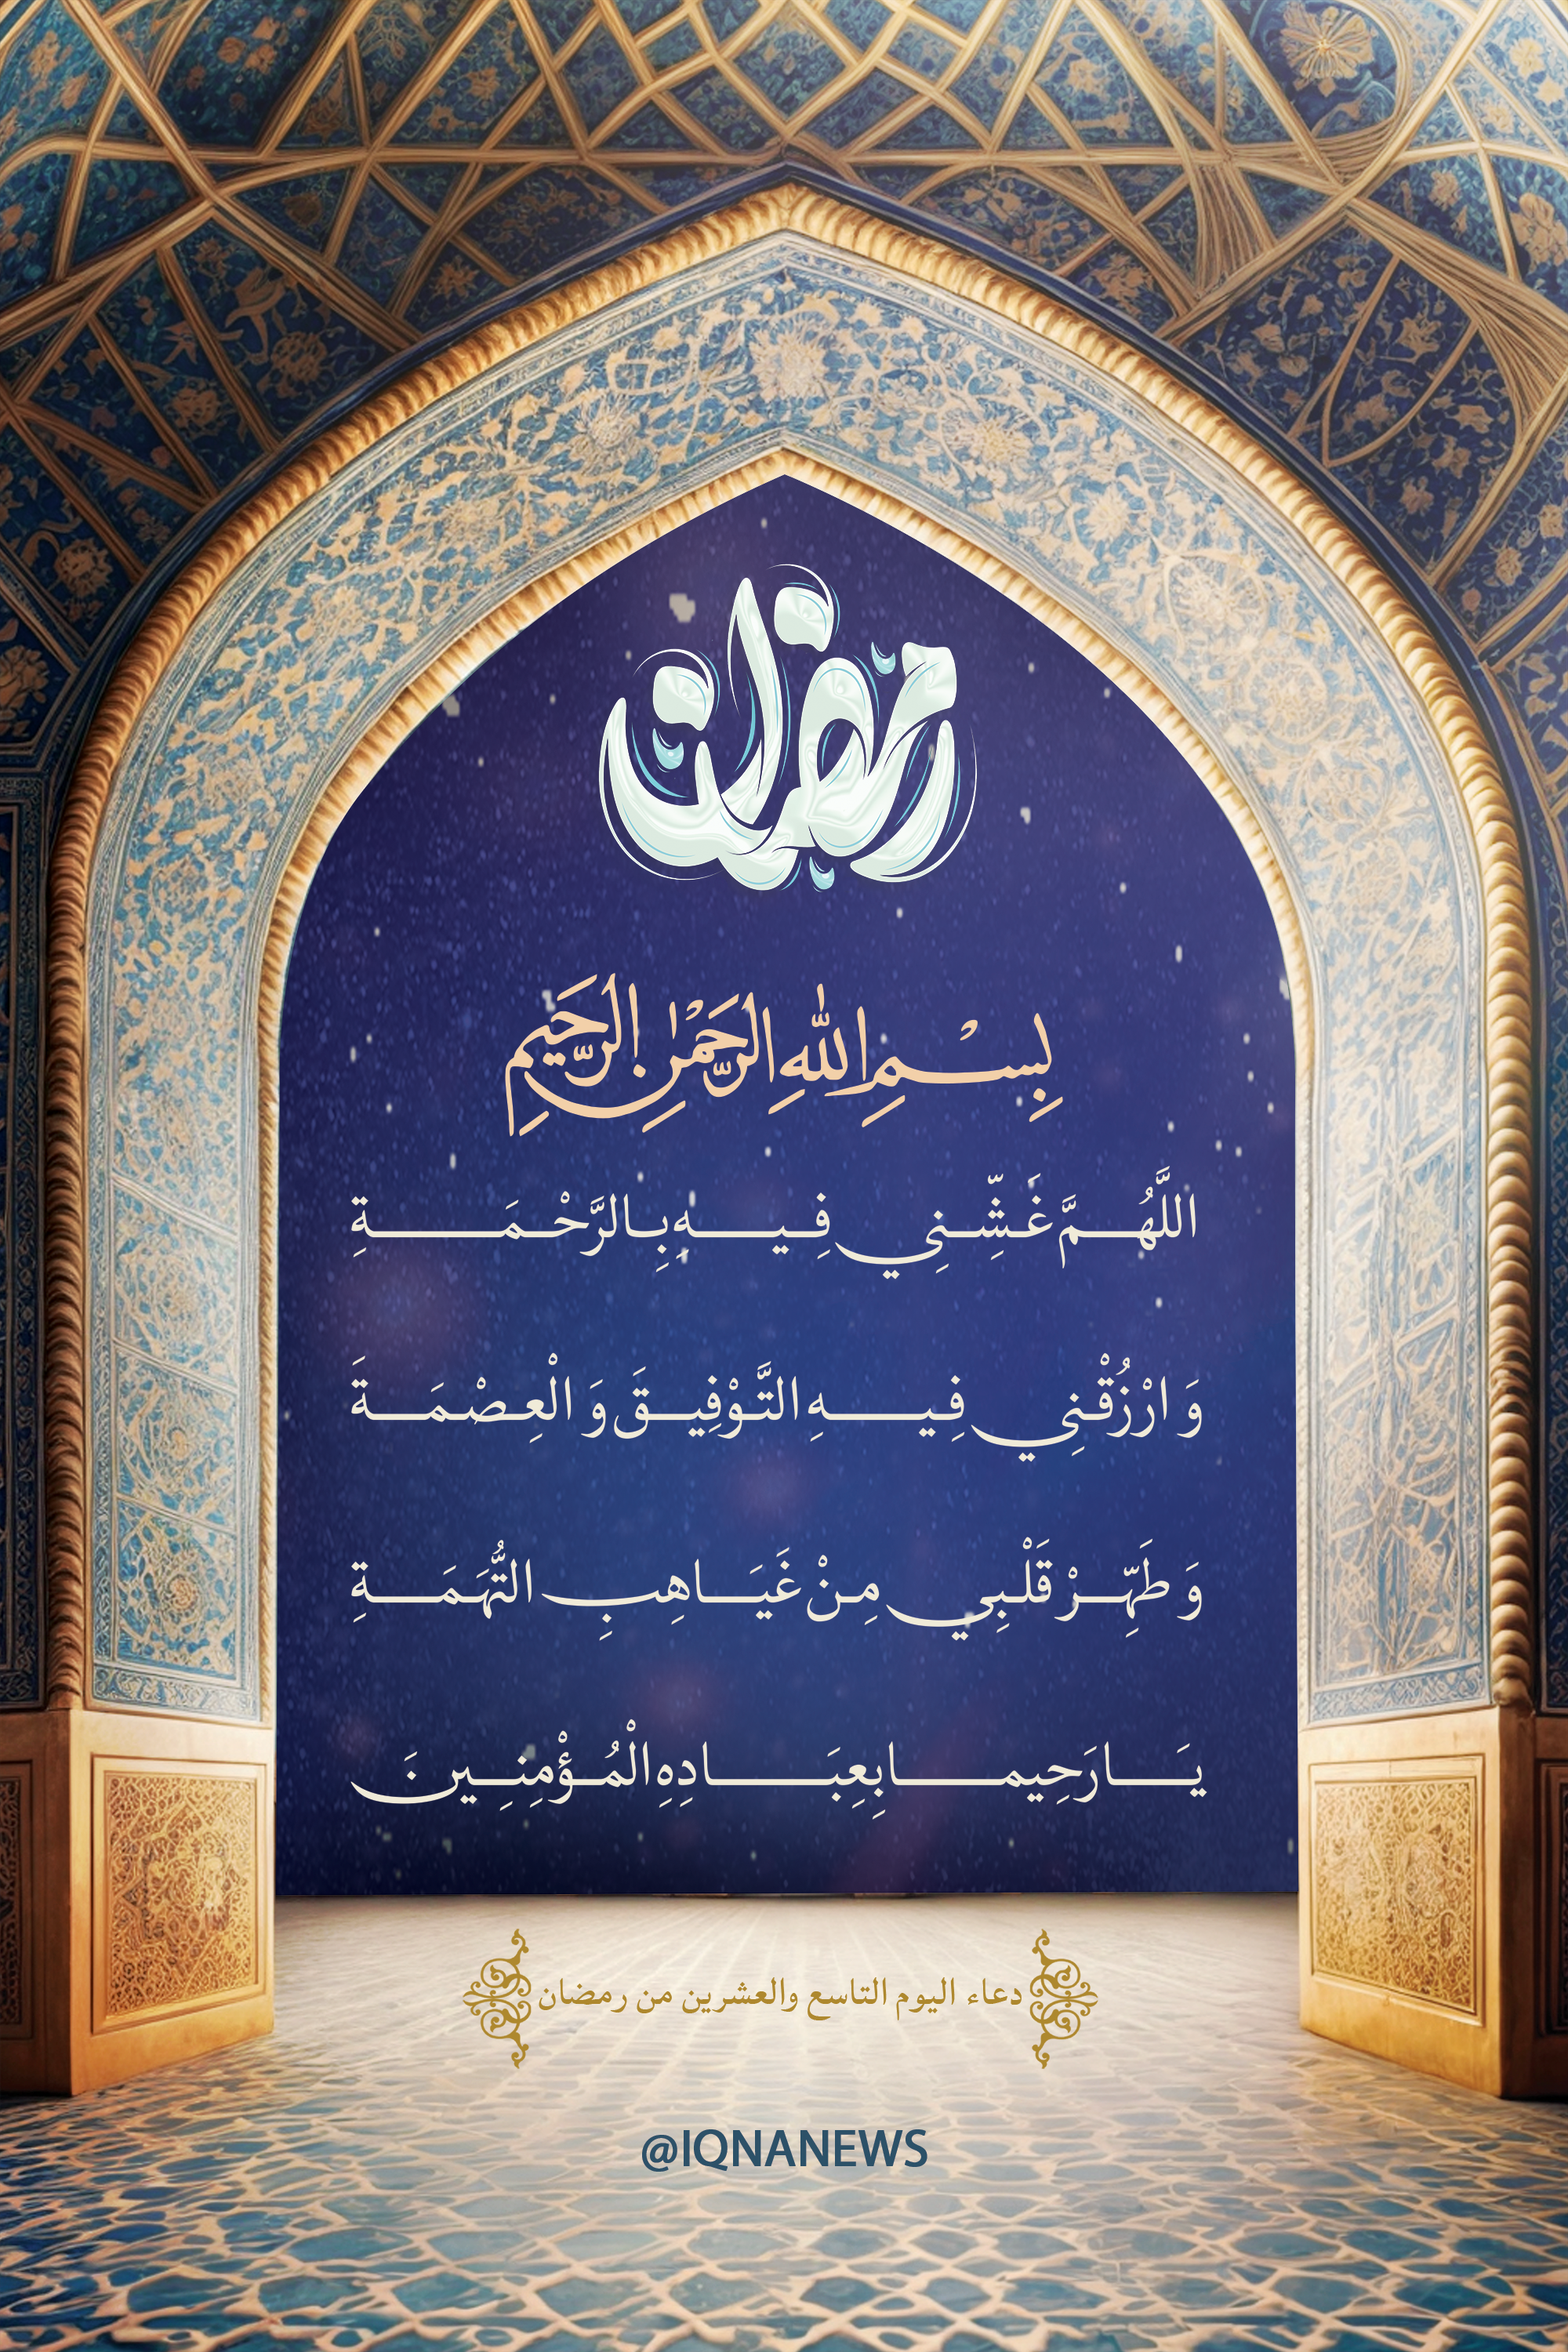 رمضان
بِسْمِ اللهِ الرَّحْمٰنِ الرَّحِيمِ
اللَّهُمَّ غَشِّنِي فِيهِ بِالرَّحْمَةِ
وَ ارْزُقْنِي فِيهِ التَّوْفِيقَ وَ الْعِصْمَةَ
وَ طَهِّرْ قَلْبِي مِنْ غَيَاهِبِ التُّهَمَةِ
يَا رَحِيما بِعِبَادِهِ الْمُؤْمِنِينَ
دعاء اليوم التاسع والعشرين من رمضان
@IQNANEWS